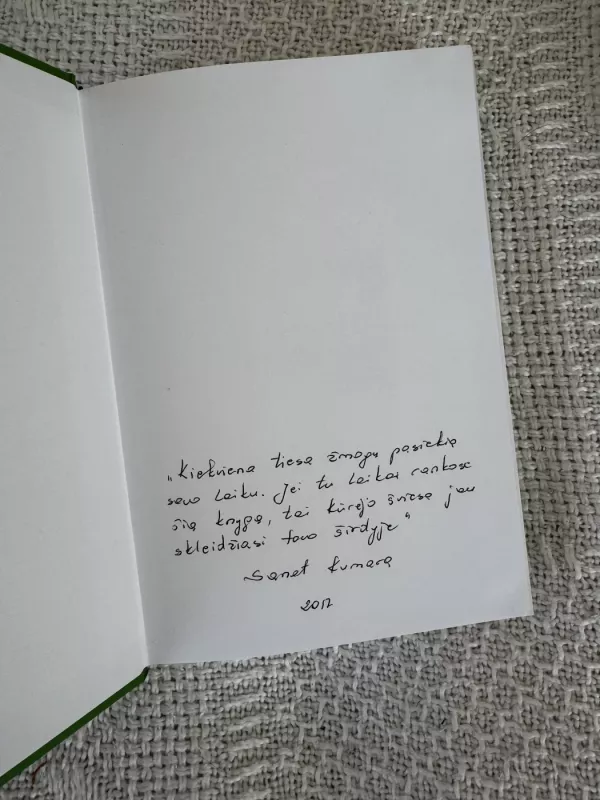 „Kiekviena tiesa žmogų pasiekia
savo laiku. Jei tu laikai rankose
šią knygą, tai kūrėjo šviesa jau
skleidžiasi tavo širdyje"
Sanat Kumara
2012